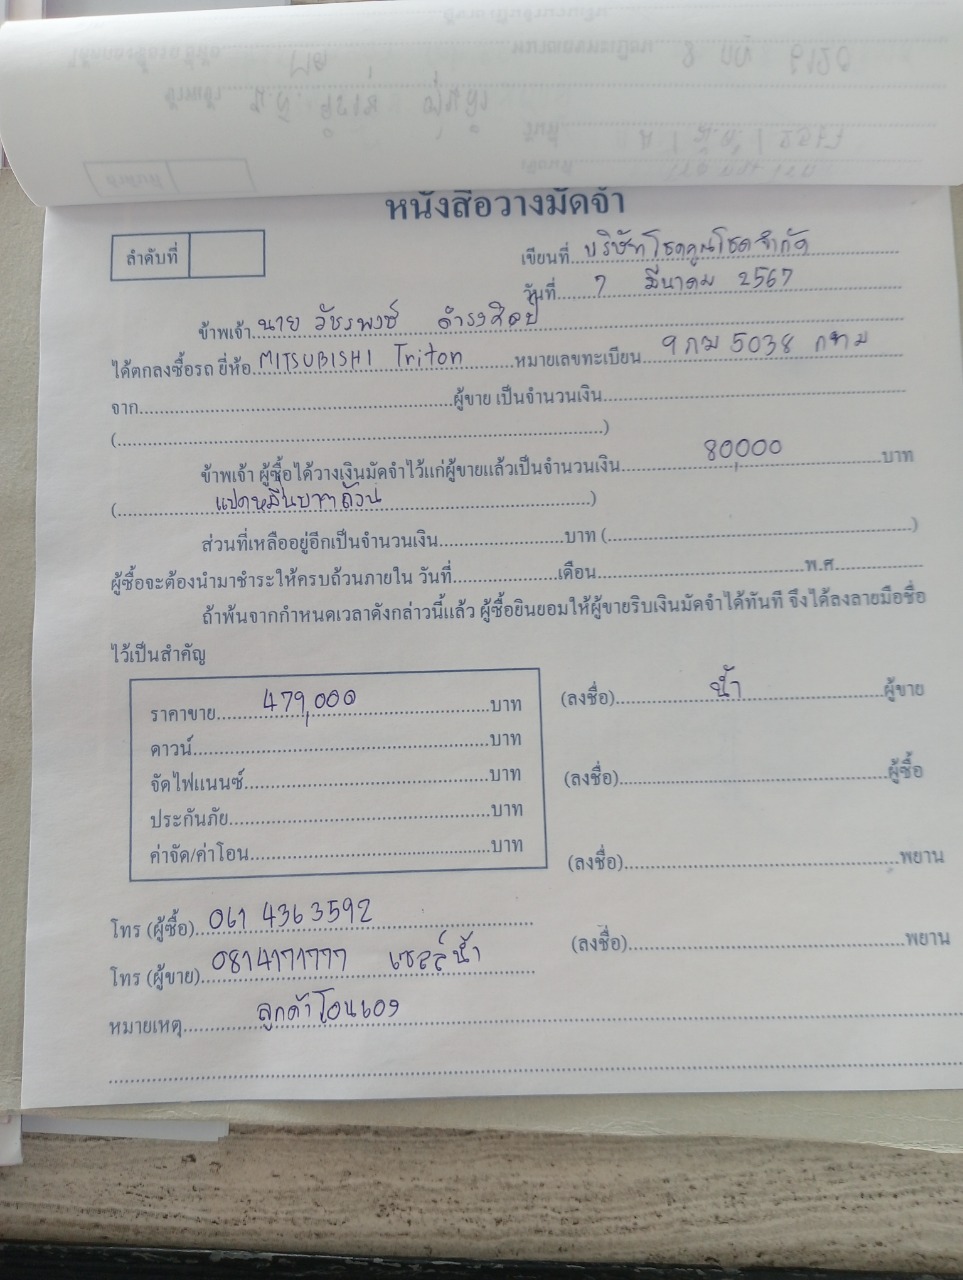 หนังสือวางมัดจำ
ลำดับที่
เขียนที่ บริษัทโชคคูนโชคจำกัด
วันที่ 7 มีนาคม 2567
ข้าพเจ้า นาย วัชรพงช์ ดำรงศิลป์
ได้ตกลงซื้อรถ ยี่ห้อ MITSUBISHI Triton หมายเลขทะเบียน 9 กม 5038 กทม
จาก ผู้ขาย เป็นจำนวนเงิน
( )
ข้าพเจ้า ผู้ซื้อได้วางเงินมัดจำไว้แก่ผู้ขายแล้วเป็นจำนวนเงิน 80,000 บาท
( แปดหมื่นบาทถ้วน )
ส่วนที่เหลืออยู่อีกเป็นจำนวนเงิน บาท ( )
ผู้ซื้อจะต้องนำมาชำระให้ครบถ้วนภายใน วันที่ เดือน พ.ศ.
ถ้าพ้นจากกำหนดเวลาดังกล่าวนี้แล้ว ผู้ซื้อยินยอมให้ผู้ขายริบเงินมัดจำได้ทันที จึงได้ลงลายมือชื่อ
ไว้เป็นสำคัญ
ราคาขาย 479,000 บาท
ดาวน์ บาท
จัดไฟแนนซ์ บาท
ประกันภัย บาท
ค่าจัด/ค่าโอน บาท
(ลงชื่อ) น้ำ ผู้ขาย
(ลงชื่อ) ผู้ซื้อ
(ลงชื่อ) พยาน
(ลงชื่อ) พยาน
โทร (ผู้ซื้อ) 061 4363592
โทร (ผู้ขาย) 0814171777 เซลล์น้ำ
หมายเหตุ ลูกค้าโอนเอง